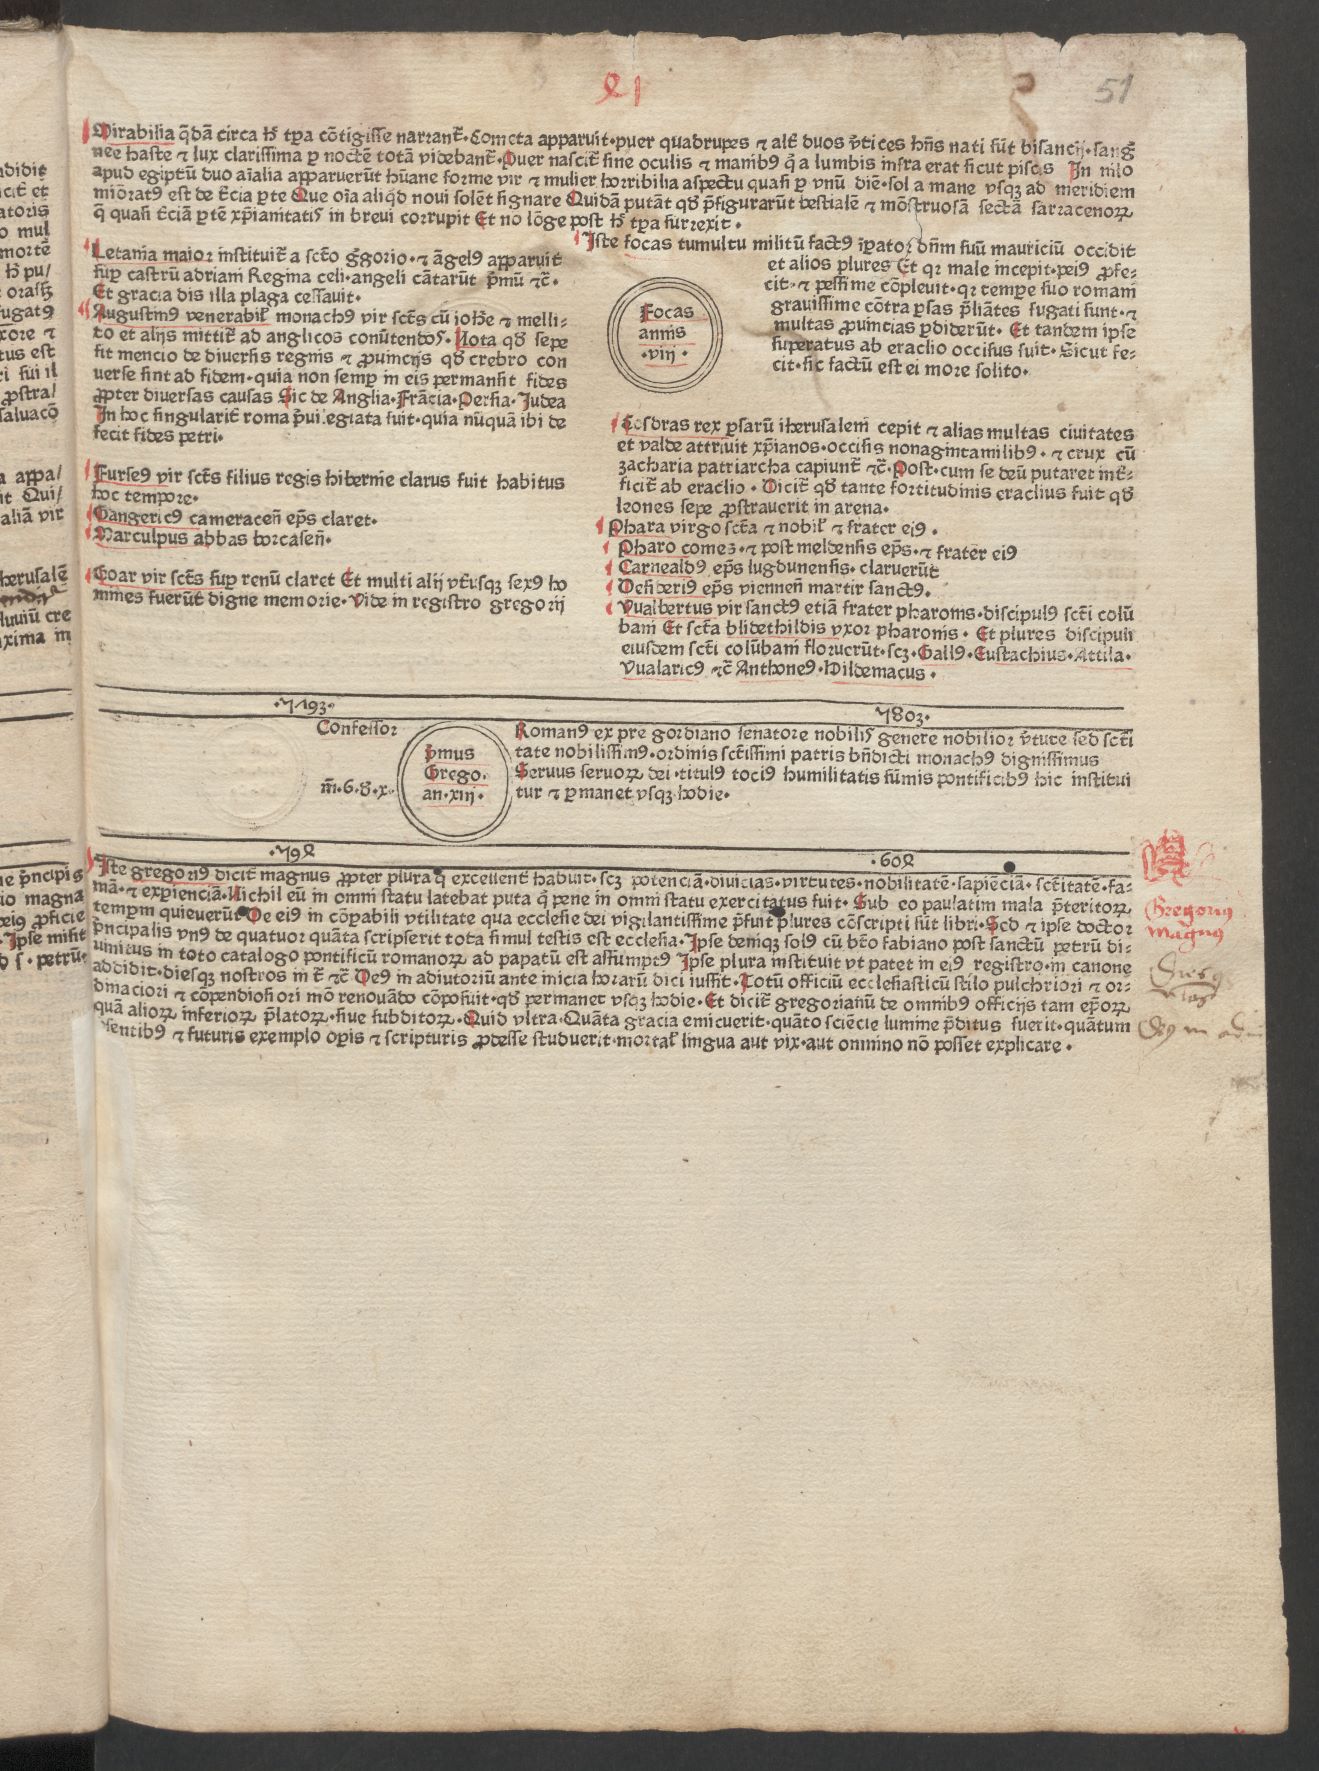 LI
51
Mirabilia q̄dā circa hͦ tp̄a cōtigisse narrant̄. Cometa apparuit. puer quadrupes ⁊ alt̄ duos v̄tices hn̄s nati sūt bisancij. sanḡ
nee haste ⁊ lux clarissima p noctē totā videbant̄. Puer nascit̄ sine oculis ⁊ manibꝰ q̄ a lumbis infra erat sicut piscis In nilo
apud egiptū duo aīalia apparuerūt hūane forme vir ⁊ mulier horribilia aspectu quasi p vnū diē. sol a mane vsqꝫ ad meridiem
miōratꝰ est de t̄cia p̄te Que oīa aliq̇d noui solēt signare Quidā putāt qd̄ p̄figurarūt bestialē ⁊ mōstruosā sectā sarracenoꝝ
q̄ quasi t̄ciā p̄tē xp̄ianitatis in breui corrupit Et nō lōge post hͦ tp̄a surrexit.
Letania maior instituit̄ a sctō g̈gorio. ⁊ āgelꝰ apparuit
sup castrū adriani Regina celi. angeli cātarūt p̄mū ⁊c̄.
Et gracia dis illa plaga cessauit.
Augustinꝰ venerabil̄ monachꝰ vir sct̄s cū joh̄e ⁊ melli-
to et alijs mittit̄ ad anglicos conūtendos. Nota qd̄ sepe
fit mencio de diuersis regnis ⁊ ꝓuincijs qd̄ crebro con
uerse sint ad fidem. quia non semp in eis permansit fides
ꝓpter diuersas causas Sic de Anglia. Frācia. Persia. Judea
In hoc singularit̄ roma p̄uilegiata fuit. quia nūquā ibi de
fecit fides petri.
Furseꝰ vir sct̄s filius regis hibernie clarus fuit habitus
hoc tempore.
Gangericꝰ cameracen̄ ep̄s claret.
Marculpus abbas borcasen̄.
Goar vir sct̄s sup renū claret Et multi alij vt̄usqꝫ sexꝰ ho
mines fuerūt digne memorie. Vide in registro gregorij
Iste focas tumultu militū factꝰ īpator dn̄m suū mauriciū occidit
et alios plures Et qr male incepit. peiꝰ ꝓfe-
cit. ⁊ pessime cōpleuit. qr tempe suo romani
grauissime cōtra psas p̄liātes fugati sunt. ⁊
multas ꝓuincias pdiderūt. Et tandem ipse
superatus ab eraclio occisus fuit. Sicut fe-
cit. sic factū est ei more solito.
Focas
annis
.viij.
Cosdras rex psarū iherusalem cepit ⁊ alias multas ciuitates
et valde attriuit xp̄ianos. occisis nonagintamilibꝰ. ⁊ crux cū
zacharia patriarcha capiunt̄ ⁊c̄. Post. cum se deū putaret int̄-
ficit̄ ab eraclio. Dicit̄ qd̄ tante fortitudinis eraclius fuit qd̄
leones sepe ꝓstrauerit in arena.
Phara virgo sct̄a ⁊ nobil̄ ⁊ frater eiꝰ.
Pharo comes. ⁊ post meldensis ep̄s. ⁊ frater eiꝰ
Carnealdꝰ ep̄s lugdunensis. claruerūt
Desideriꝰ ep̄s viennen̄ martir sanctꝰ.
Vualbertus vir sanctꝰ etiā frater pharonis. discipulꝰ sct̄i colū
bani Et sct̄a blidethildis vxor pharonis. Et plures discipuli
eiusdem sct̄i colūbani floruerūt. scꝫ. Gallꝰ. Eustachius. Attila.
Vualaricꝰ ⁊c̄ Anthoneꝰ. Hildemacus.
.5793. 5803.
Confessor
m̄. 6. 8. x.
p̄mus
Grego.
an. xiij.
Romanꝰ ex pre gordiano senatore nobilis genere nobilior v̄tute sed sct̄i
tate nobilissimꝰ. ordinis sct̄issimi patris bn̄dicti monachꝰ dignissimus
Seruus seruoꝝ dei. titulꝰ tociꝰ humilitatis sūmis pontificibꝰ hic institui
tur ⁊ pmanet vsqꝫ hodie.
.594. .604.
Iste gregoriꝰ dicit̄ magnus ꝓpter plura q̄ excellent̄ habuit. scꝫ potenciā. diuicias. virtutes. nobilitatē. sapiēciā. sct̄itatē. fa-
mā. ⁊ expienciā. Nichil eū in omni statu latebat puta q̄ pene in omni statu exercitatus fuit. Sub eo paulatim mala p̄teritoꝝ
tempm quieuerūt De eiꝰ in cōpabili vtilitate qua ecclesie dei vigilantissime p̄fuit plures cōscripti sūt libri. Sed ⁊ ipse doctor
p̄ncipalis vnꝰ de quatuor quāta scripserit tota simul testis est ecclesia. Ipse deniqꝫ solꝰ cū bt̄o fabiano post sanctū petrū di-
uinitus in toto catalogo pontificū romanoꝝ ad papatū est assumptꝰ Ipse plura instituit vt patet in eiꝰ registro. in canone
addidit. diesqꝫ nostros in t̄ ⁊c̄ Deꝰ in adiutoriū ante inicia horarū dici iussit. Totū officiū ecclesiasticū stilo pulchriori ⁊ or-
dinaciori ⁊ cōpendiosiori mō renouādo cōposuit. qd̄ permanet vsqꝫ hodie. Et dicit̄ gregorianū de omnibꝰ officijs tam ep̄oꝝ
quā alioꝝ inferioꝝ p̄latoꝝ. siue subditoꝝ. Quid vltra. Quāta gracia emicuerit. quāto sciēcie lumine p̄ditus fuerit. quātum
p̄sentibꝰ ⁊ futuris exemplo opis ⁊ scripturis ꝓdesse studuerit. mortal̄ lingua aut vix. aut omnino nō posset explicare.
Gregorius
magnus